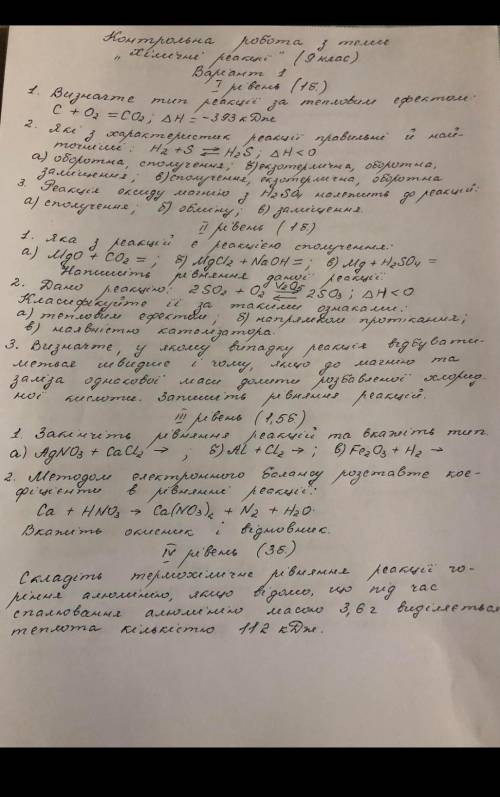 Контрольна робота з теми
„Хімічні реакції" (9 клас)
Варіант 1
I рівень (1б)
1. Визначте тип реакції за тепловим ефектом:
C + O₂ = CO₂; ΔH = -393 кДж
2. Які з характеристик реакції правильні й най-
точніші: H₂ + S ⇄ H₂S; ΔH < 0
а) оборотна, сполучення; б) екзотермічна, оборотна,
заміщення; в) сполучення, екзотермічна, оборотна
3. Реакція оксиду магнію з H₂SO₄ належить до реакцій:
а) сполучення; б) обміну; в) заміщення.
II рівень (1б)
1. Яка з реакцій є реакцією сполучення:
а) MgO + CO₂ = ; б) MgCl₂ + NaOH = ; в) Mg + H₂SO₄ =
Напишіть рівняння даної реакції
2. Дано реакцію: 2SO₂ + O₂ ⇄ (V₂O₅) 2SO₃; ΔH < 0
Класифікуйте її за такими ознаками:
а) тепловим ефектом; б) напрямком протікання;
в) наявністю каталізатора.
3. Визначте, у якому випадку реакція відбувати-
меться швидше і чому, якщо до магнію та
заліза однакової маси долити розбавленої хлорид-
ної кислоти. Запишіть рівняння реакцій.
III рівень (1,5б)
1. Закінчіть рівняння реакцій та вкажіть тип.
а) AgNO₃ + CaCl₂ → ; б) Al + Cl₂ → ; в) Fe₂O₃ + H₂ →
2. Методом електронного балансу розставте кое-
фіцієнти в рівнянні реакції:
Ca + HNO₃ → Ca(NO₃)₂ + N₂ + H₂O.
Вкажіть окисник і відновник.
IV рівень (3б)
Складіть термохімічне рівняння реакції го-
ріння алюмінію, якщо відомо, що під час
спалювання алюмінію масою 3,6 г виділяється
теплота кількістю 112 кДж.